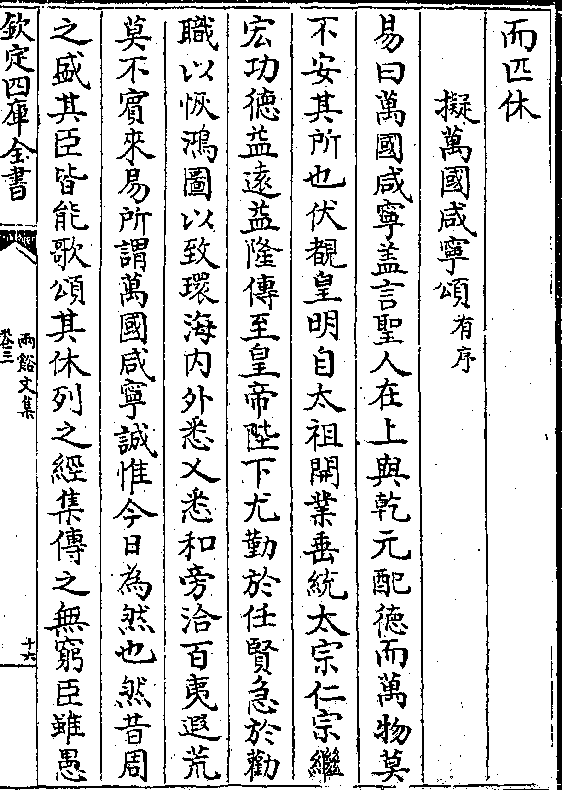 而匹休
擬萬國咸寧頌有序
易曰萬國咸寧盖言聖人在上與乾元配德而萬物莫
不安其所也伏覩皇明自太祖開業垂統太宗仁宗繼
宏功德益逺益隆傳至皇帝陛下尤勤於任賢急於勸
職以恢鴻圖以致環海内外悉乂悉和旁洽百夷遐荒
莫不賓來易所謂萬國咸寧誠惟今日為然也然昔周
之盛其臣皆能歌頌其休列之經集傳之無窮臣雖愚
欽定四庫全書
兩谿文集
卷三
十六